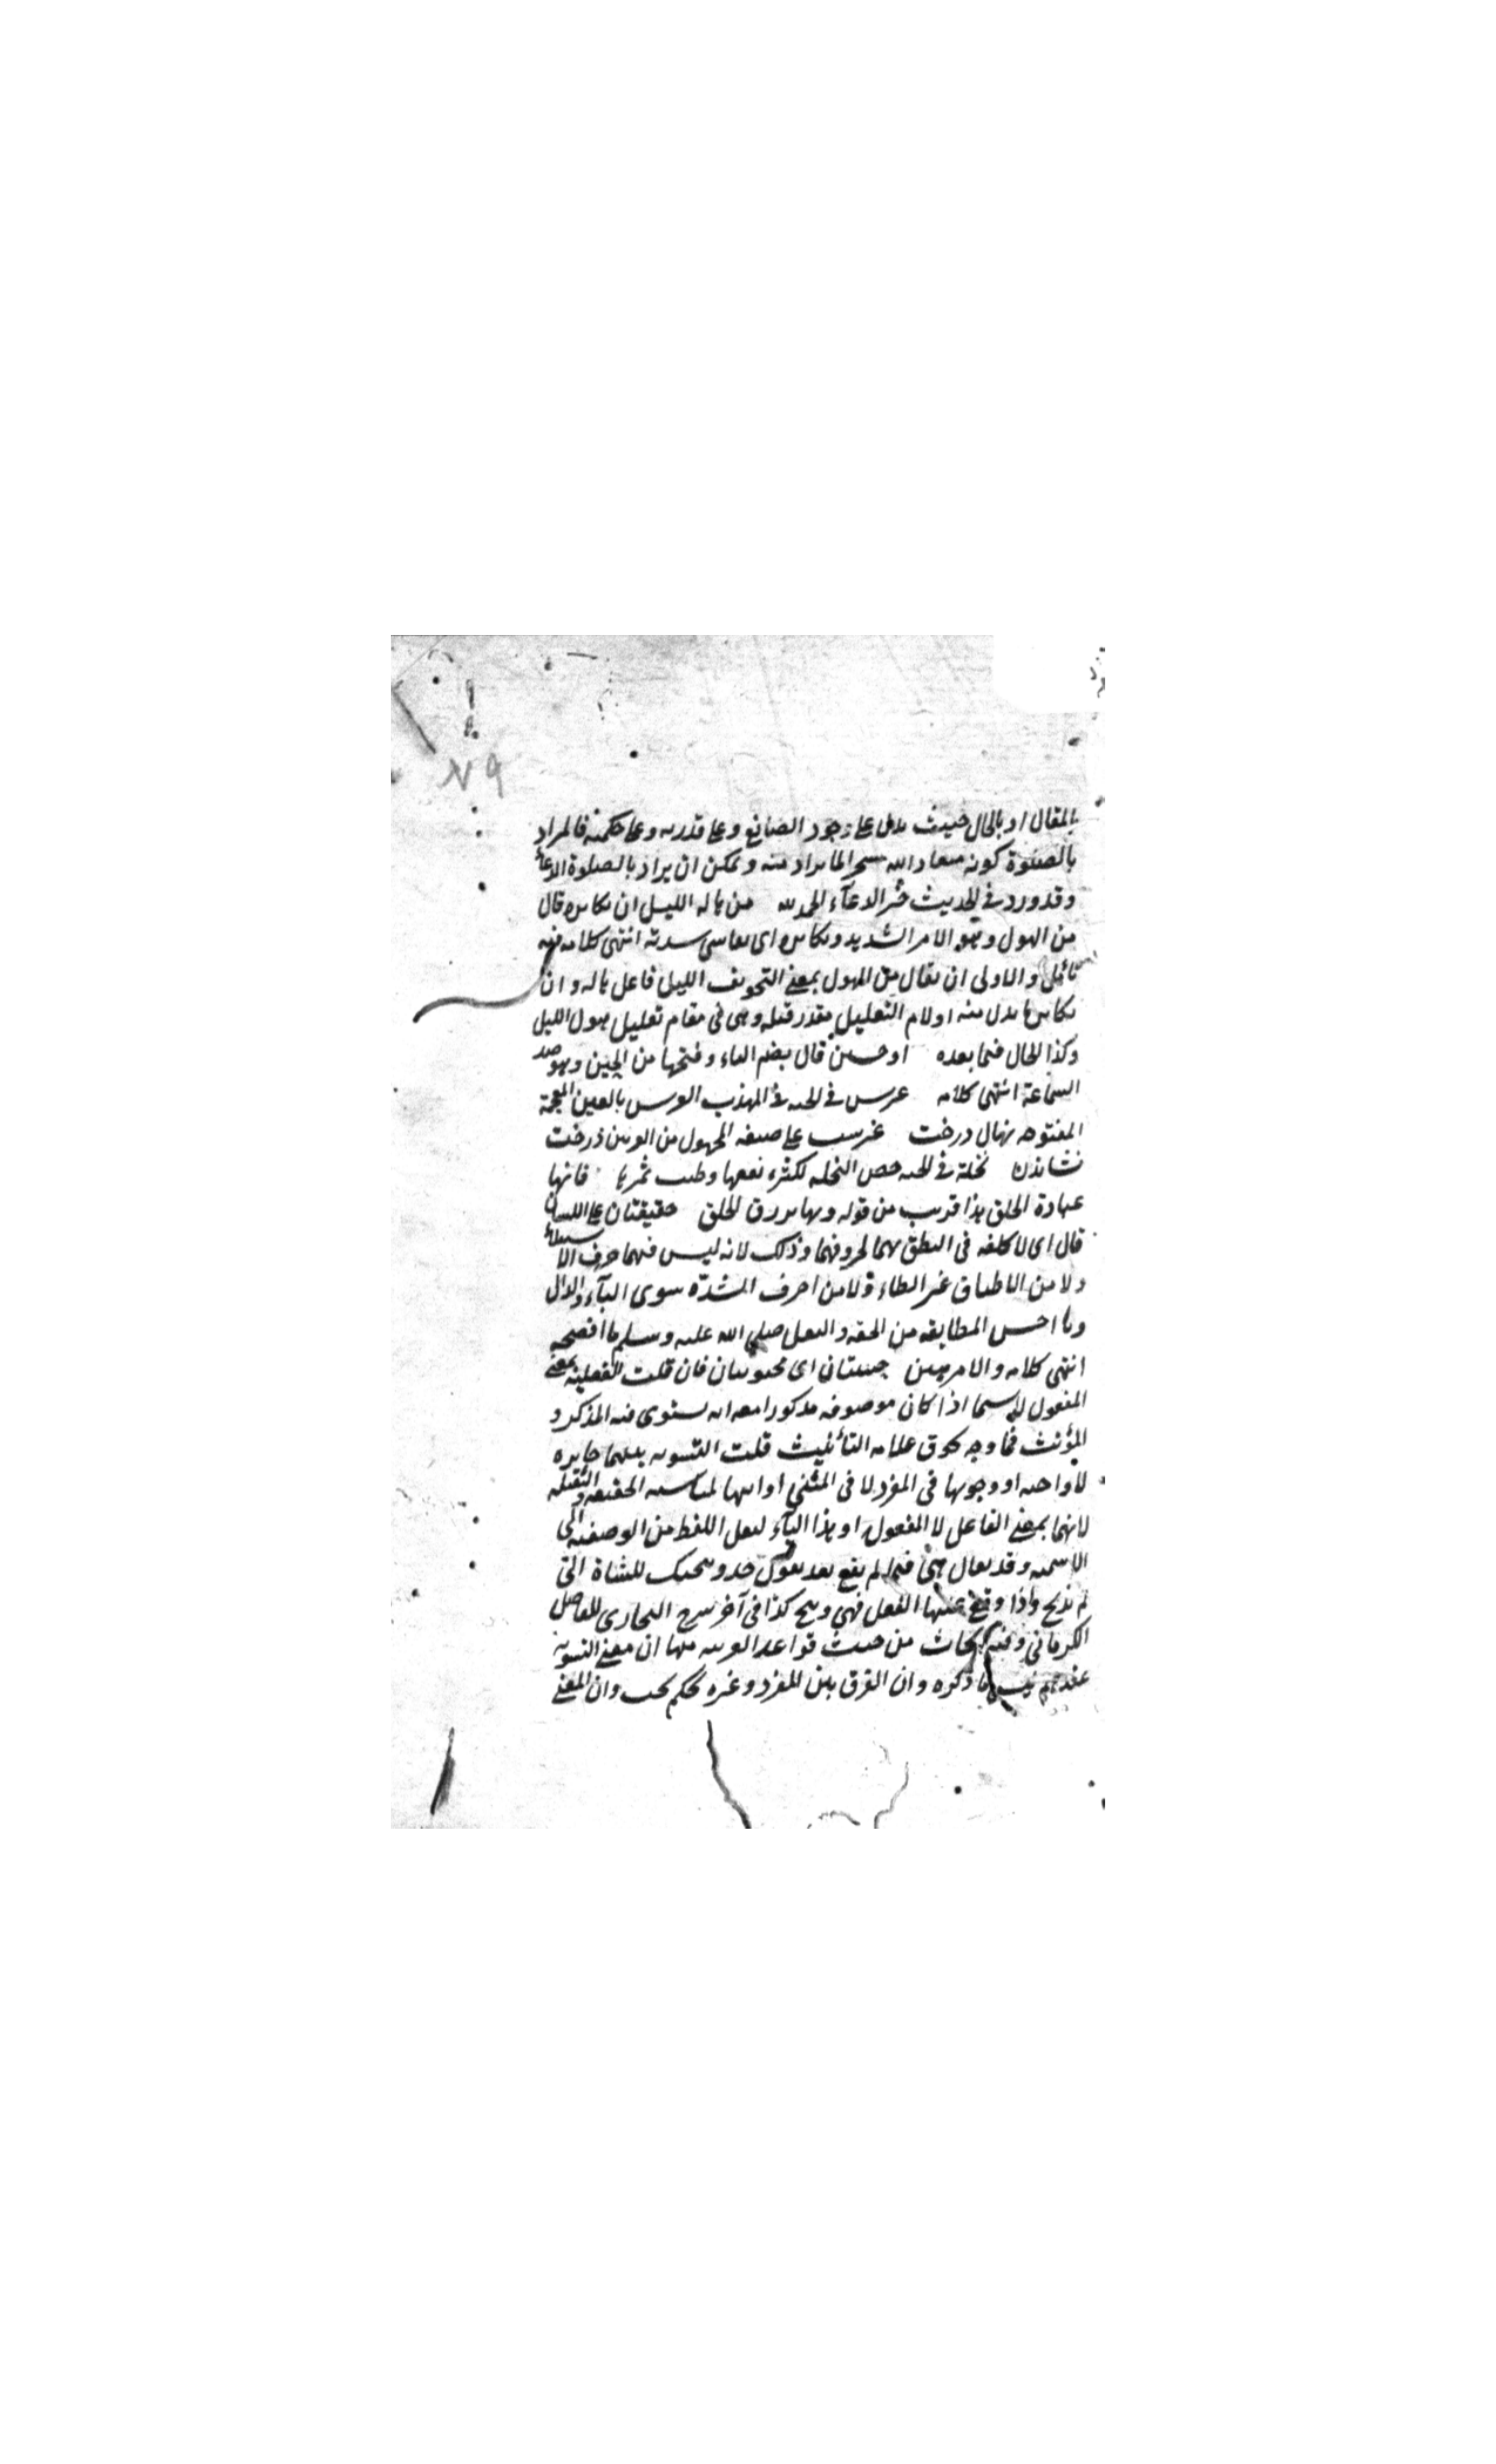 بالمقال او بالحال حيث يدل على وجود الصانع وعلى قدرته وعلى حكمته فالمراد
بالصلوة كونه منقادا لله مسخرا لما يراد منه ويمكن ان يراد بالصلوة الدعاء
وقد ورد في الحديث خير الدعآء الحمد لله من هاله الليل ان يكابده قال
من الهول وهو الامر الشديد ويكابده اى يقاسى شدته انتهى كلامه فيه
تأمل والاولى ان يقال من الهول بمعنى التخويف الليل فاعل هاله و ان
يكابده بدل منه او لام التعليل مقدر قبله وهى فى مقام تعليل هول الليل
وكذا الحال فيما بعده او جبن قال بضم الباء وفتحها من الجبن وهو ضد
الشجاعة انتهى كلامه غرس في الجنة في المهذب الغرس بالغين المعجمة
المفتوحه نهال درخت غرست على صيغه المجهول من الغرس درخت
نشاندن نخلة في الجنه خص النخله لكثرة نفعها وطيب ثمرها فانها
عبادة الخلق هذا قريب من قوله وبها يرزق الخلق خفيفتان على اللسان
قال اى لا كلفه فى النطق بهما لحروفهما وذلك لانه ليس فيهما حرف الاستعلاء
ولا من الاطباق غير الظاء ولا من احرف الشدّة سوى البآء والدال
وما احسن المطابقه من الخفه والثقل صلى الله عليه وسلم ما افصحه
انتهى كلامه والامر هين حبيبتان اى محبوبتان فان قلت الفعيلة بمعنى
المفعول لا سيما اذا كان موصوفه مذكورا معه انه يستوى فيه المذكر و
المؤنث فما وجه لحوق علامه التأنيث قلت التسويه بينهما جايزه
لا واجبه او وجوبها فى المفرد لا فى المثنى او انها لمناسبه الخفيفه والثقيله
لانهما بمعنى الفاعل لا المفعول او هذا التآء لنقل اللفظ من الوصفيه الى
الاسميه وقد يقال هى فيما لم يقع بعد تقول خذ ذبيحتك للشاة التى
لم تذبح واذا وقع عليها الفعل فهى ذبيح كذا فى آخر شرح البخارى للفاضل
الكرمانى وفيه ابحاث من حيث قواعد العربيه منها ان معنى التسوية
عندهم ليس ما ذكره وان الفرق بين المفرد وغيره تحكم بحت وان المعنى